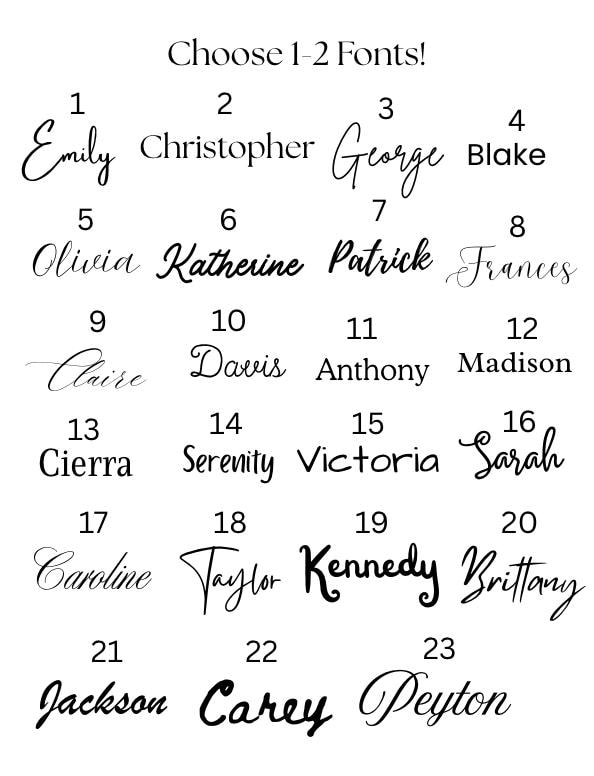 Choose 1-2 Fonts!
1 2 3 4
Emily Christopher George Blake
5 6 7 8
Olivia Katherine Patrick Frances
9 10 11 12
Claire Davis Anthony Madison
13 14 15 16
Cierra Serenity Victoria Sarah
17 18 19 20
Caroline Taylor Kennedy Brittany
21 22 23
Jackson Carey Peyton